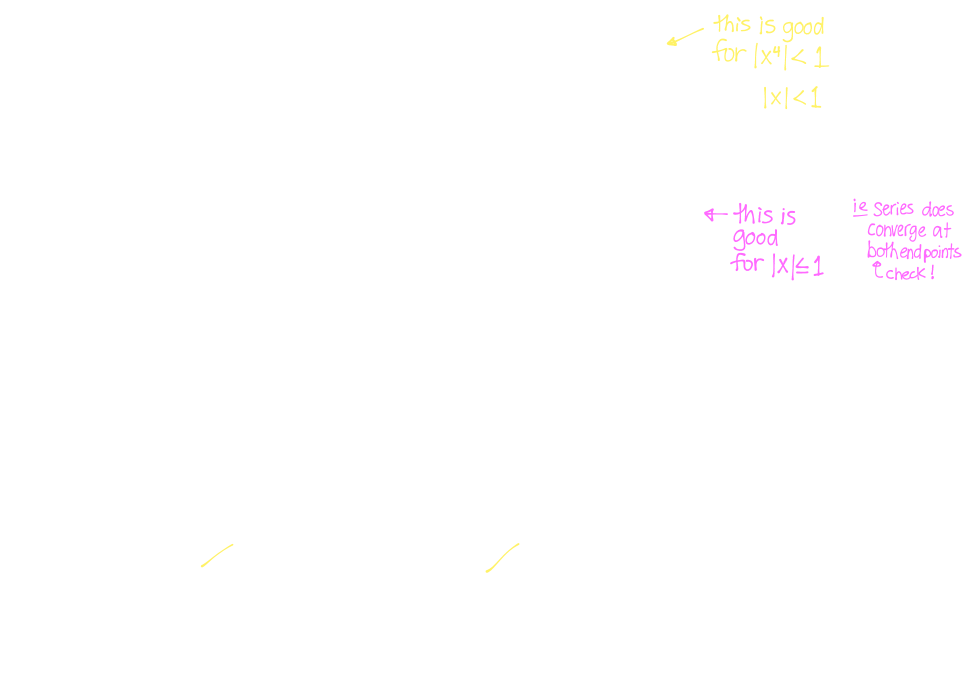 this is good
for |x⁴| < 1
|x| < 1
this is
good
for |x| ≤ 1
ie Series does
converge at
both endpoints
check!